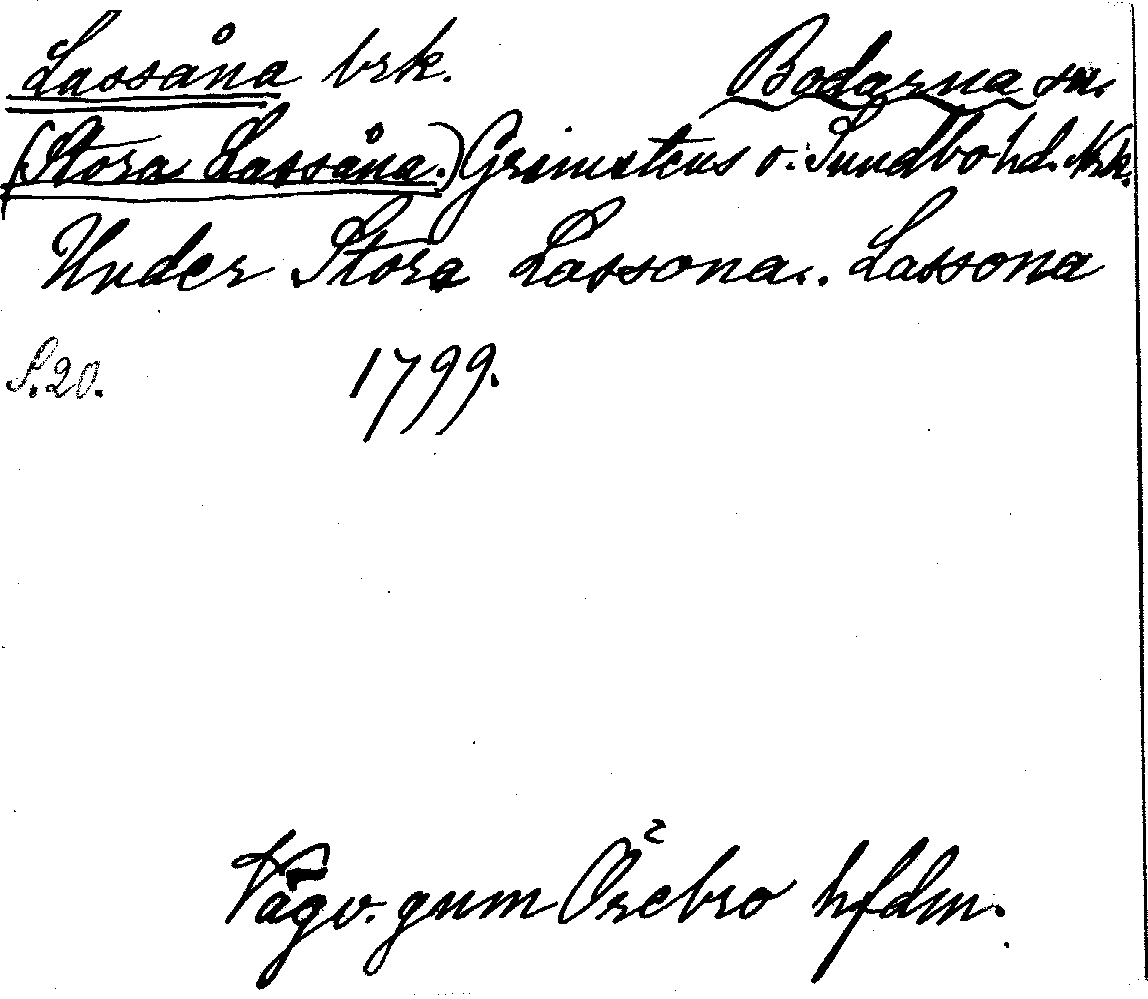 Lassåna brk. Bodarna sn.
(Stora Lassåna.) Grimstens o. Sundbo hd. Nrk.
Under Stora Lassona. Lassona
S. 20. 1799.
Vägv. gnm Örebro hfdm.